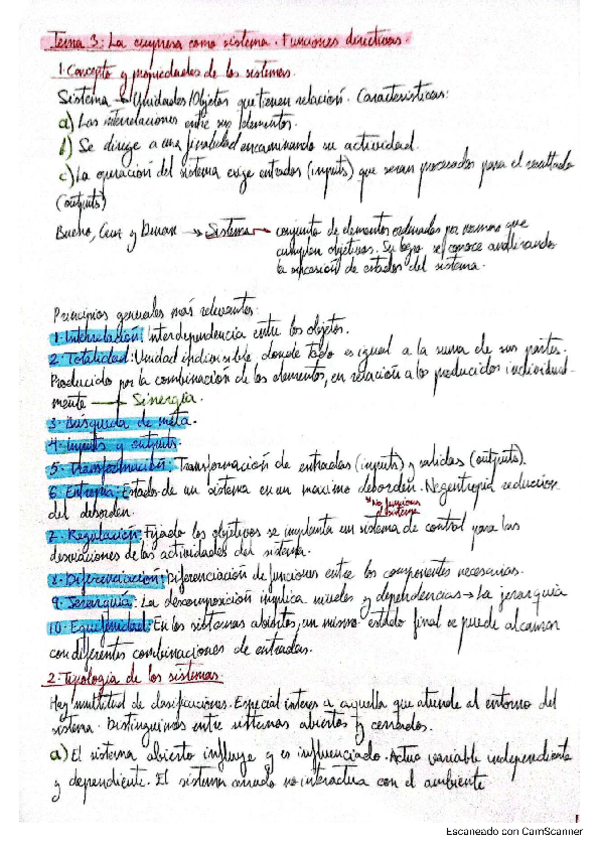 Tema 3: La empresa como sistema. Funciones directivas.
1. Concepto y propiedades de los sistemas.
Sistema → Unidades/Objetos que tienen relación. Características:
a) Las interrelaciones entre sus elementos.
b) Se dirige a una finalidad encaminando su actividad.
c) La operación del sistema exige entradas (inputs) que serán procesadas para el resultado
(outputs)
Bueno, Cruz y Durán → Sistema → conjunto de elementos ordenados por normas que
cumplen objetivos. Su logro se conoce analizando
la sucesión de estados del sistema.
Principios generales más relevantes:
1. Interrelación: Interdependencia entre los objetos.
2. Totalidad: Unidad indivisible, donde todo es igual a la suma de sus partes.
Producido por la combinación de los elementos, en relación a los producidos individual-
mente → Sinergia.
3. Búsqueda de meta.
4. Inputs y outputs.
5. Transformación: Transformación de entradas (inputs) y salidas (outputs).
6. Entropía: Estados de un sistema en un máximo desorden. Negentropía reducción
del desorden.
*No funciona
el sistema
7. Regulación: Fijado los objetivos se implanta un sistema de control para las
desviaciones de las actividades del sistema.
8. Diferenciación: Diferenciación de funciones entre los componentes necesarias.
9. Jerarquía: La descomposición implica niveles y dependencias → La jerarquía
10. Equifinidad: En los sistemas abiertos, un mismo estado final se puede alcanzar
con diferentes combinaciones de entradas.
2. Tipología de los sistemas.
Hay multitud de clasificaciones. Especial interés a aquella que atiende al entorno del
sistema. Distinguimos entre sistemas abiertos y cerrados.
a) El sistema abierto influye y es influenciado. Actúa variable independiente
y dependiente. El sistema cerrado no interactúa con el ambiente
1
Escaneado con CamScanner